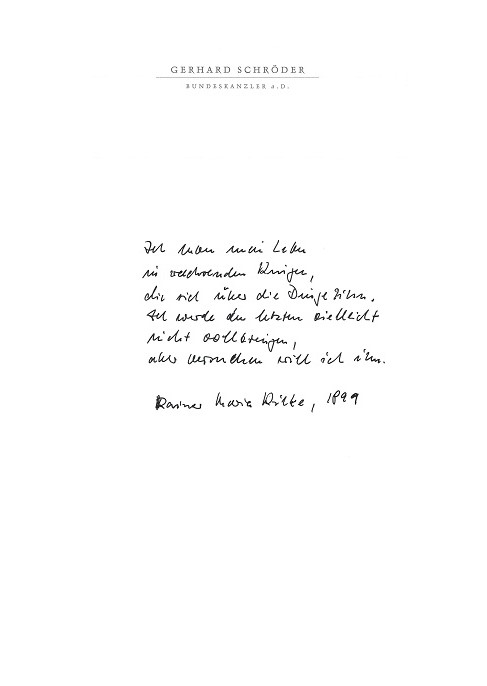 GERHARD SCHRÖDER
BUNDESKANZLER a.D.
Ich lebe mein Leben
in wachsenden Ringen,
die sich über die Dinge ziehn.
Ich werde den letzten vielleicht
nicht vollbringen,
aber versuchen will ich ihn.
Rainer Maria Rilke, 1899